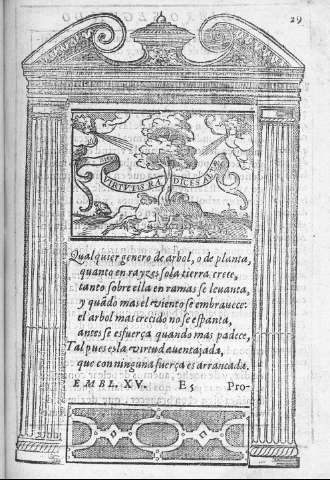 29
VIRTVTIS RADICES
Qualquier genero de arbol, o de planta,
quanto en rayzes so la tierra crece,
tanto sobre ella en ramas se leuanta,
y quãdo mas el viento se embrauece:
el arbol mas crecido no se espanta,
antes se esfuerça quando mas padece,
Tal pues es la virtud auentajada,
que con ninguna fuerça es arrancada.
EMBL. XV. E5 Pro-